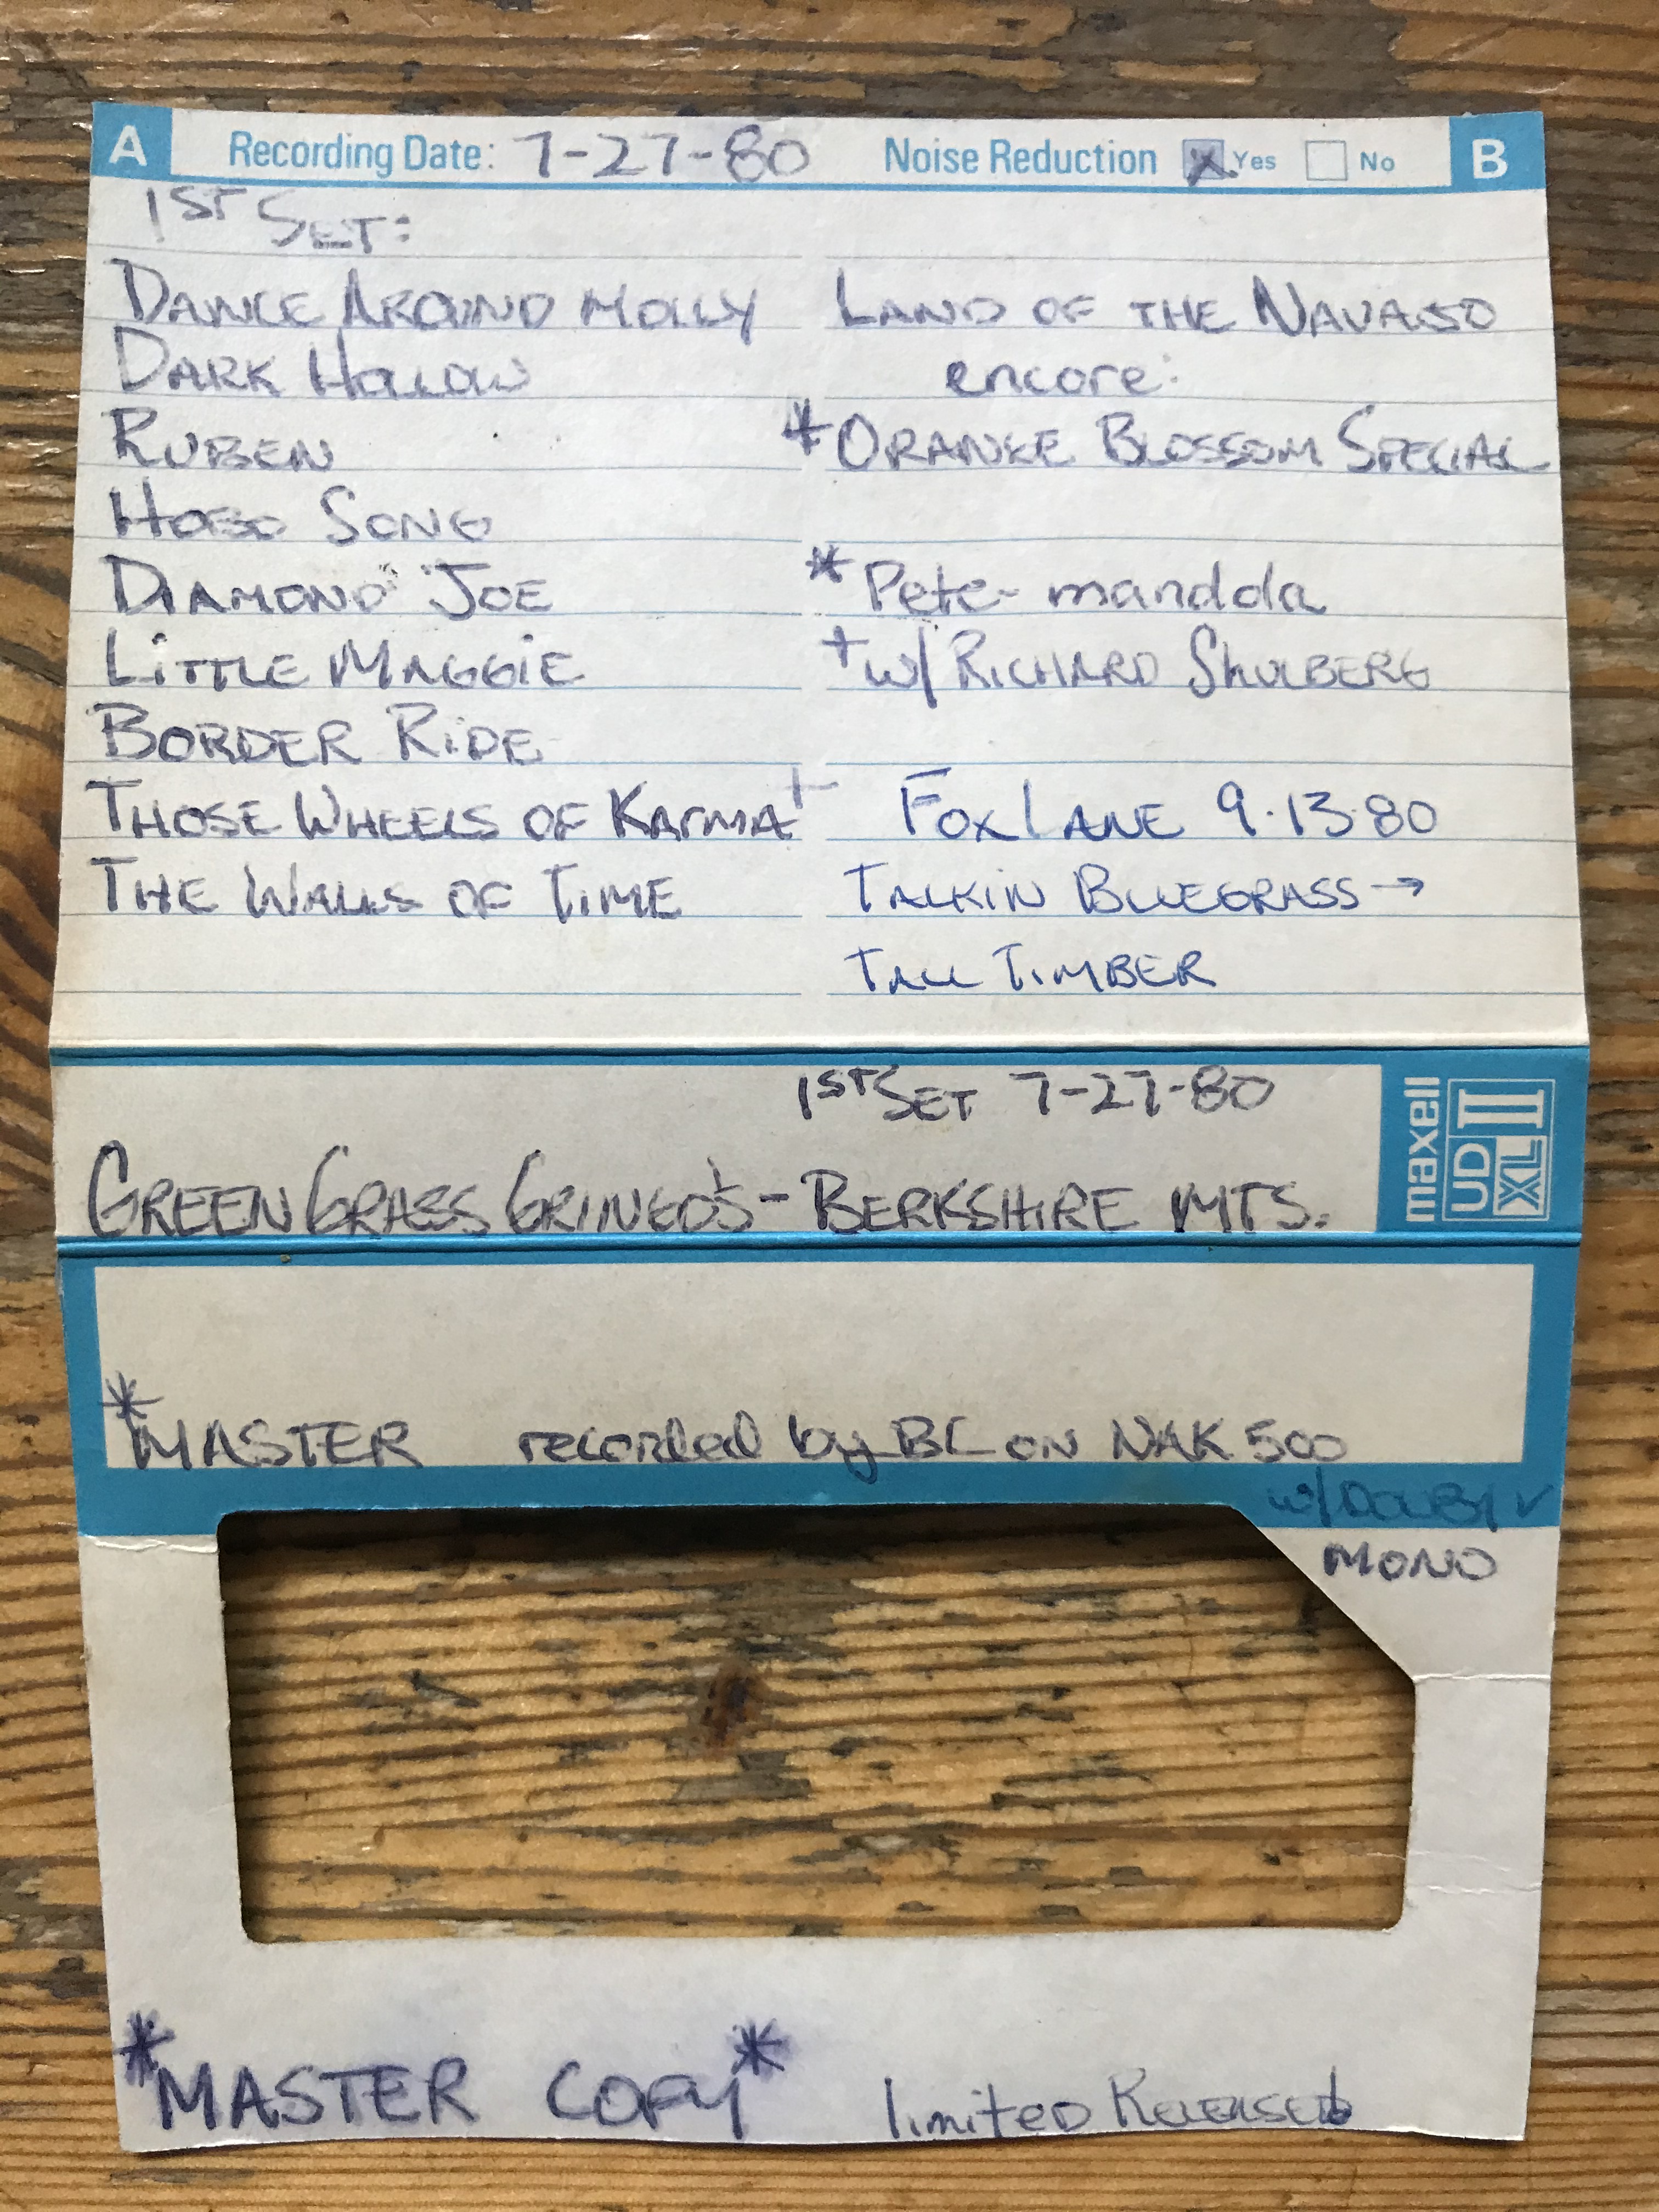 A Recording Date: 7-27-80 Noise Reduction Yes No B
1ST SET:
DANCE AROUND MOLLY
DARK HOLLOW
RUBEN
HOBO SONG
DIAMOND JOE
LITTLE MAGGIE
BORDER RIDE
THOSE WHEELS OF KARMA+
THE WALLS OF TIME
LAND OF THE NAVAJO
encore:
*ORANGE BLOSSOM SPECIAL
*Pete- mandola
+w/ RICHARD SHULBERG
FOX LANE 9.13.80
TALKIN BLUEGRASS →
TALL TIMBER
1ST SET 7-27-80
GREEN GRASS GRINGO'S - BERKSHIRE MTS.
maxell
UD XL II
*MASTER recorded by BC ON NAK 500
w/DOLBY ✓
MONO
*MASTER COPY* limited RELEASED